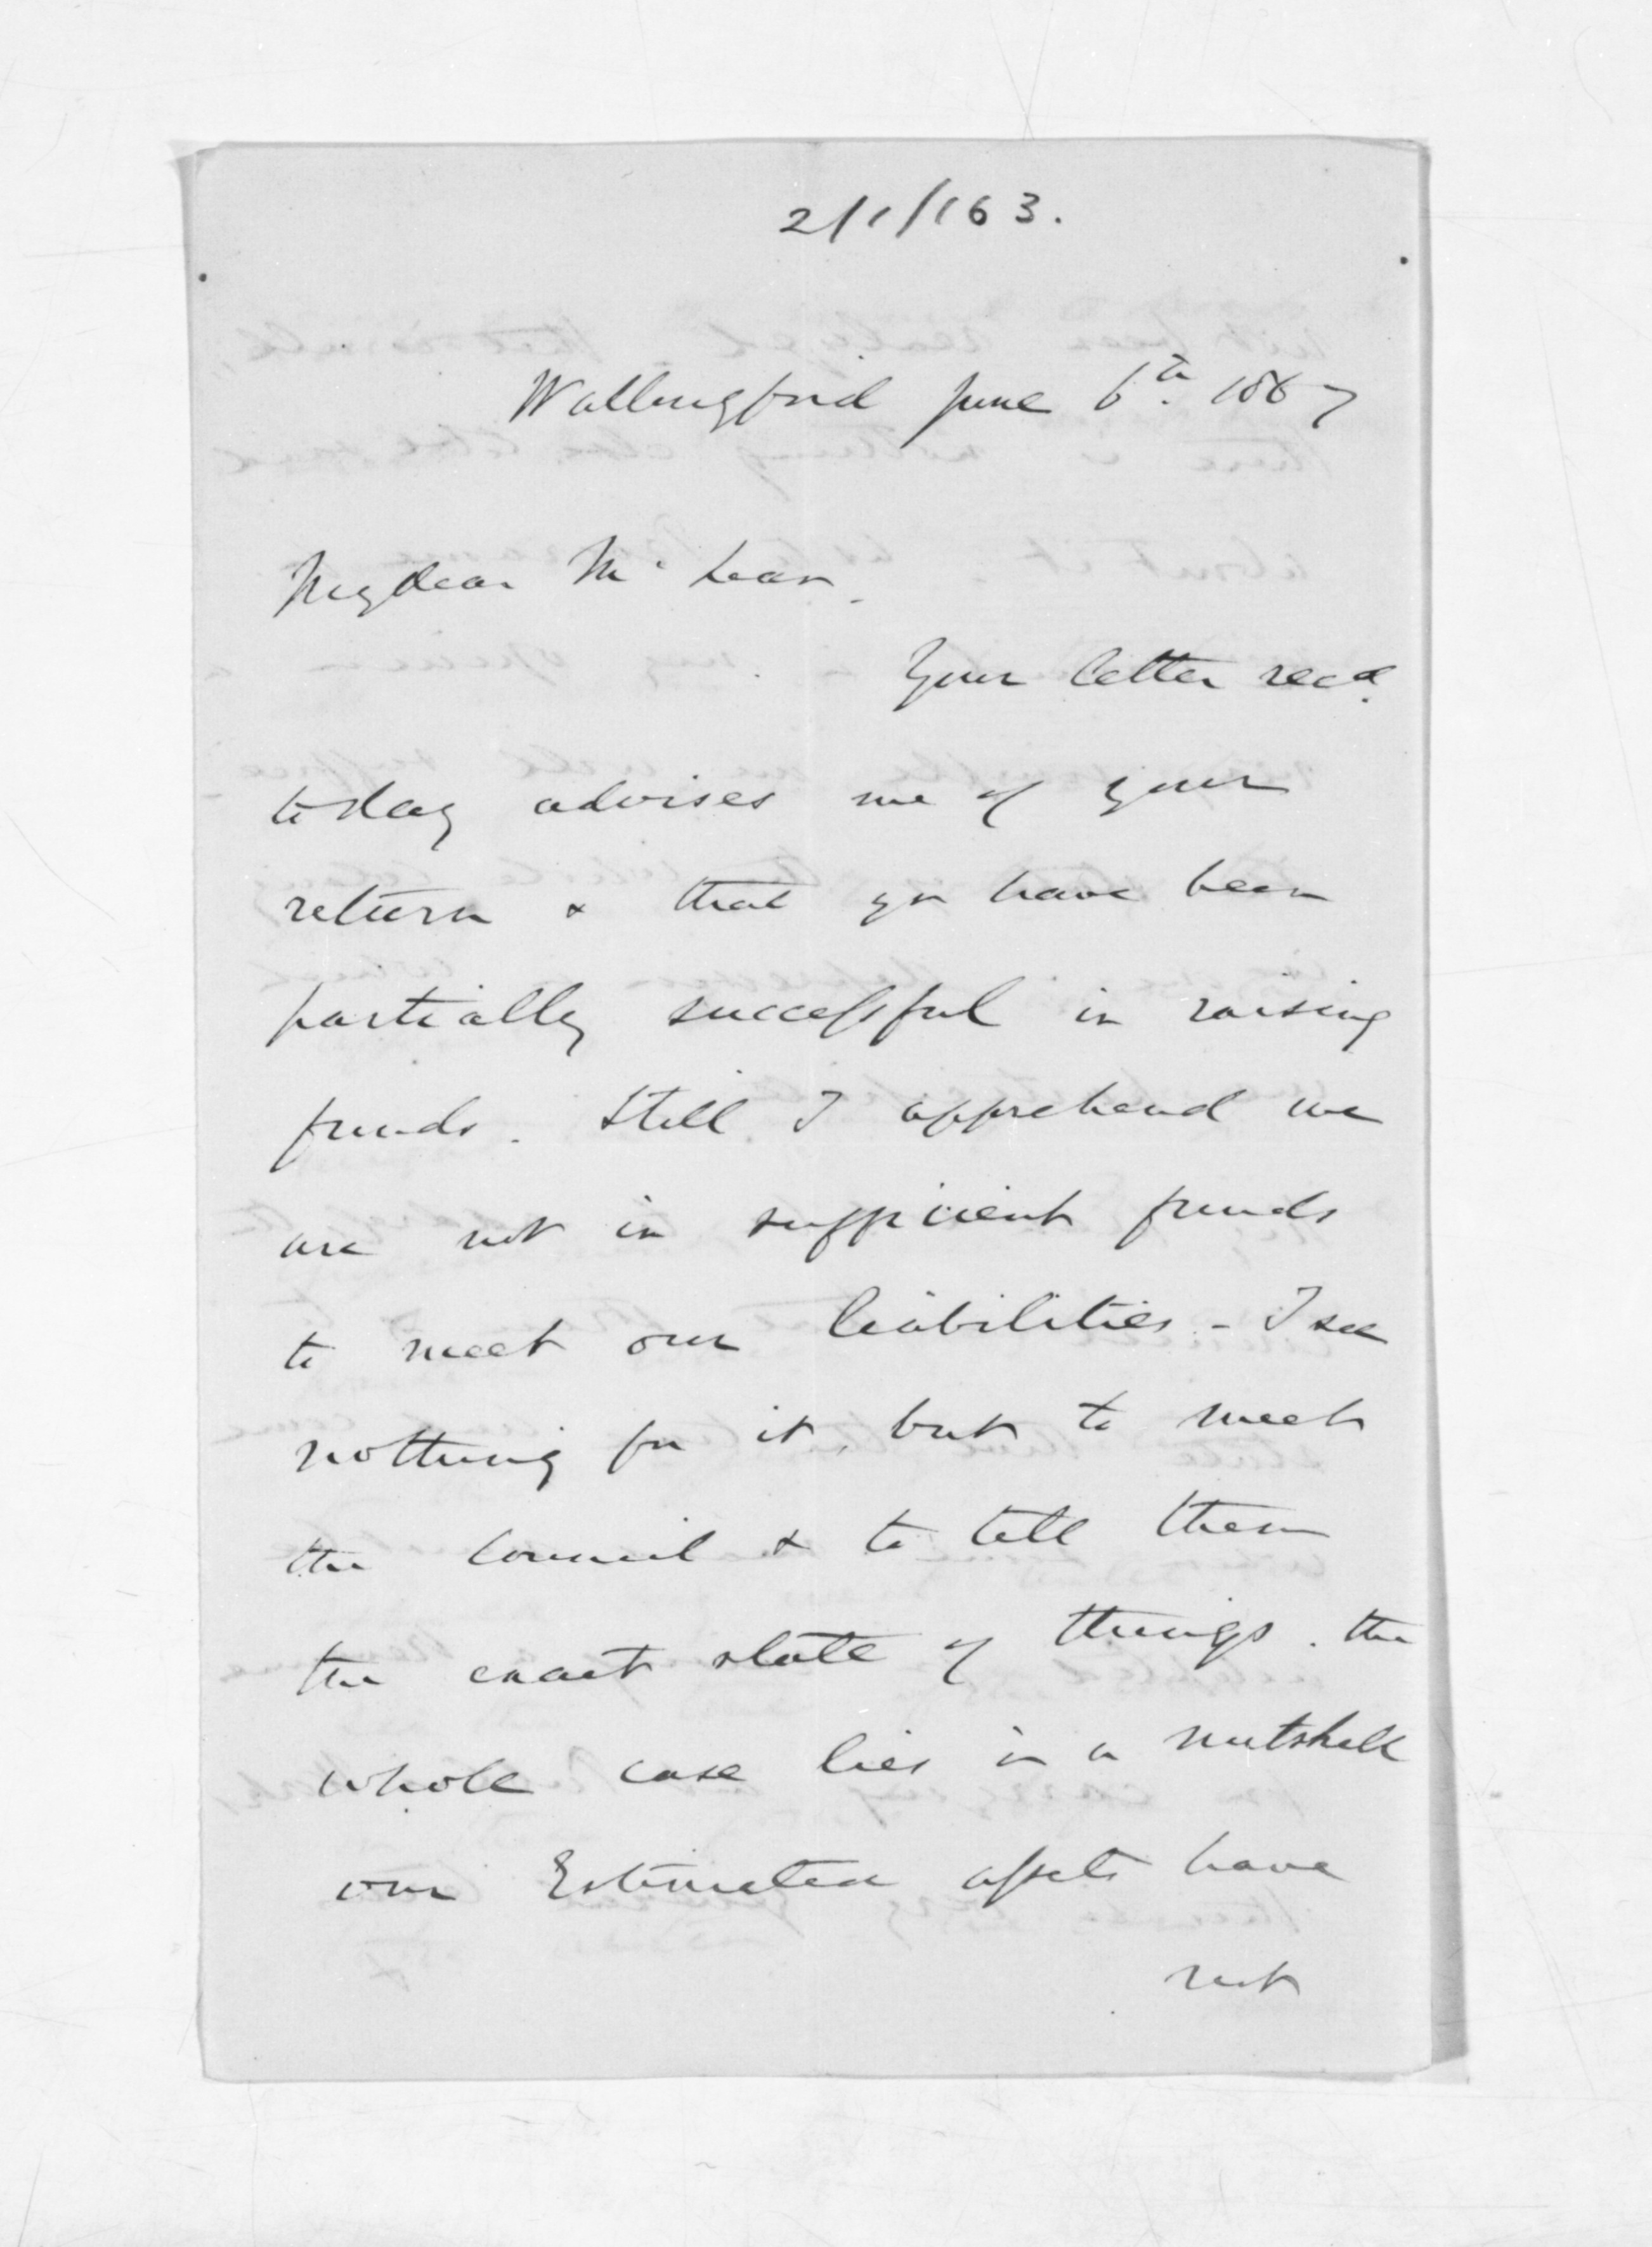 2/1/163.
Wallingford June 6th. 1867
My dear Mc Lean.
Your letter recd.
today advises me of your
return & that you have been
partially successful in raising
funds. Still I apprehend we
are not in sufficient funds
to meet our liabilities - I see
nothing for it, but to meet
the Council & to tell them
the exact state of things. the
whole case lies in a nutshell
our Estimated assets have
not